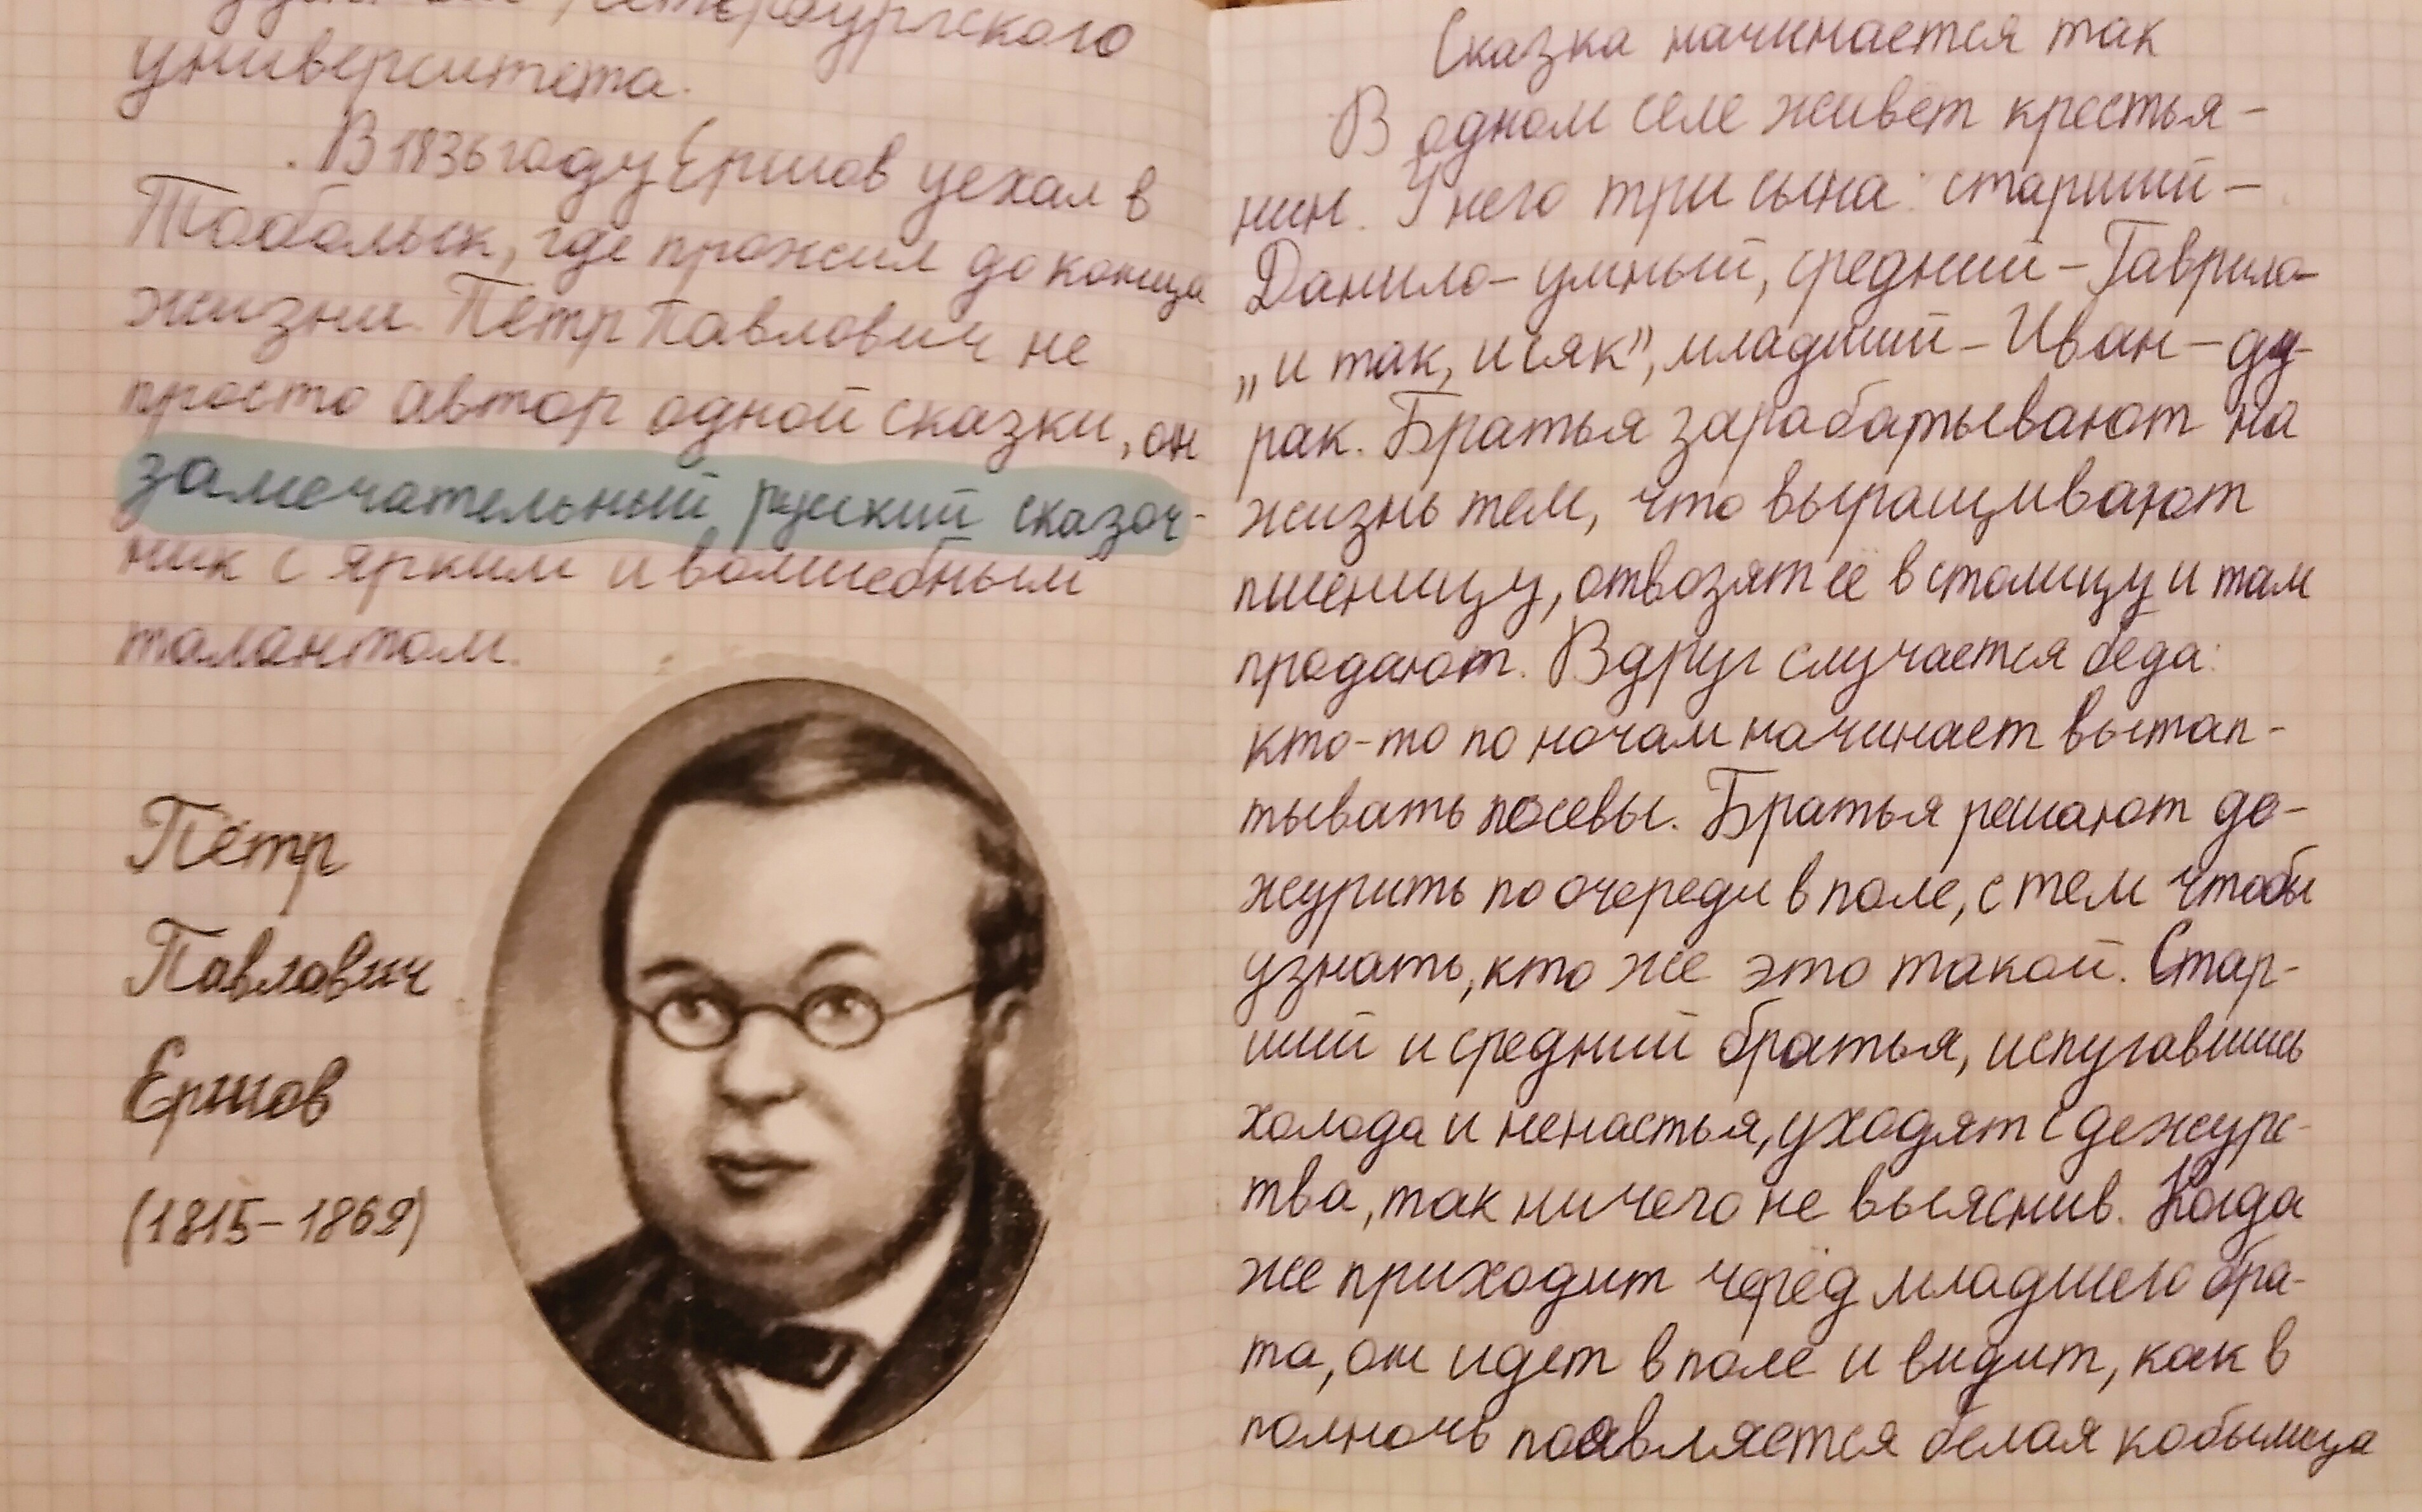 Петербургского
университета.
В 1836 году Ершов уехал в
Тобольск, где прожил до конца
жизни. Пётр Павлович не
просто автор одной сказки, он
замечательный русский сказоч-
ник с ярким и волшебным
талантом.
Пётр
Павлович
Ершов
(1815-1869)
Сказка начинается так
В одном селе живёт крестья-
нин. У него три сына: старший -
Данило - умный, средний - Гаврило -
„и так, и сяк", младший - Иван - ду-
рак. Братья зарабатывают на
жизнь тем, что выращивают
пшеницу, отвозят её в столицу и там
продают. Вдруг случается беда:
кто-то по ночам начинает вытап-
тывать посевы. Братья решают де-
журить по очереди в поле, с тем чтобы
узнать, кто же это такой. Стар-
ший и средний братья, испугавшись
холода и ненастья, уходят с дежурс-
тва, так ничего не выяснив. Когда
же приходит черёд младшего бра-
та, он идет в поле и видит, как в
полночь появляется белая кобылица